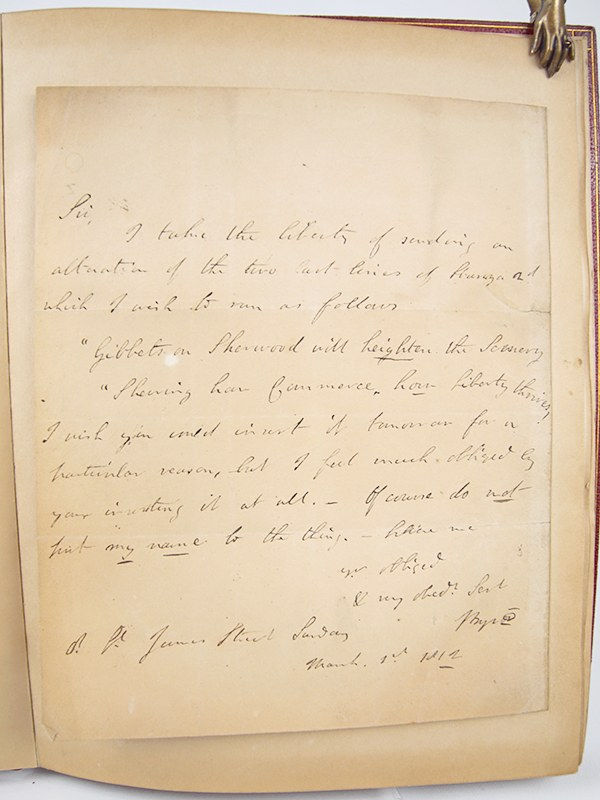 Sir,
I take the liberty of sending an
alteration of the two last lines of Stanza 2d
which I wish to run as follows
"Gibbets on Sherwood will heighten the Scenery
"Shewing how Commerce, how Liberty thrives!
I wish you could insert it tomorrow for a
particular reason, but I feel much obliged by
your inserting it at all. — Of course do not
put my name to the thing. — believe me
yr obliged
& very obedt Sert
Byron
8. St. James Street Sunday
March 1st 1812